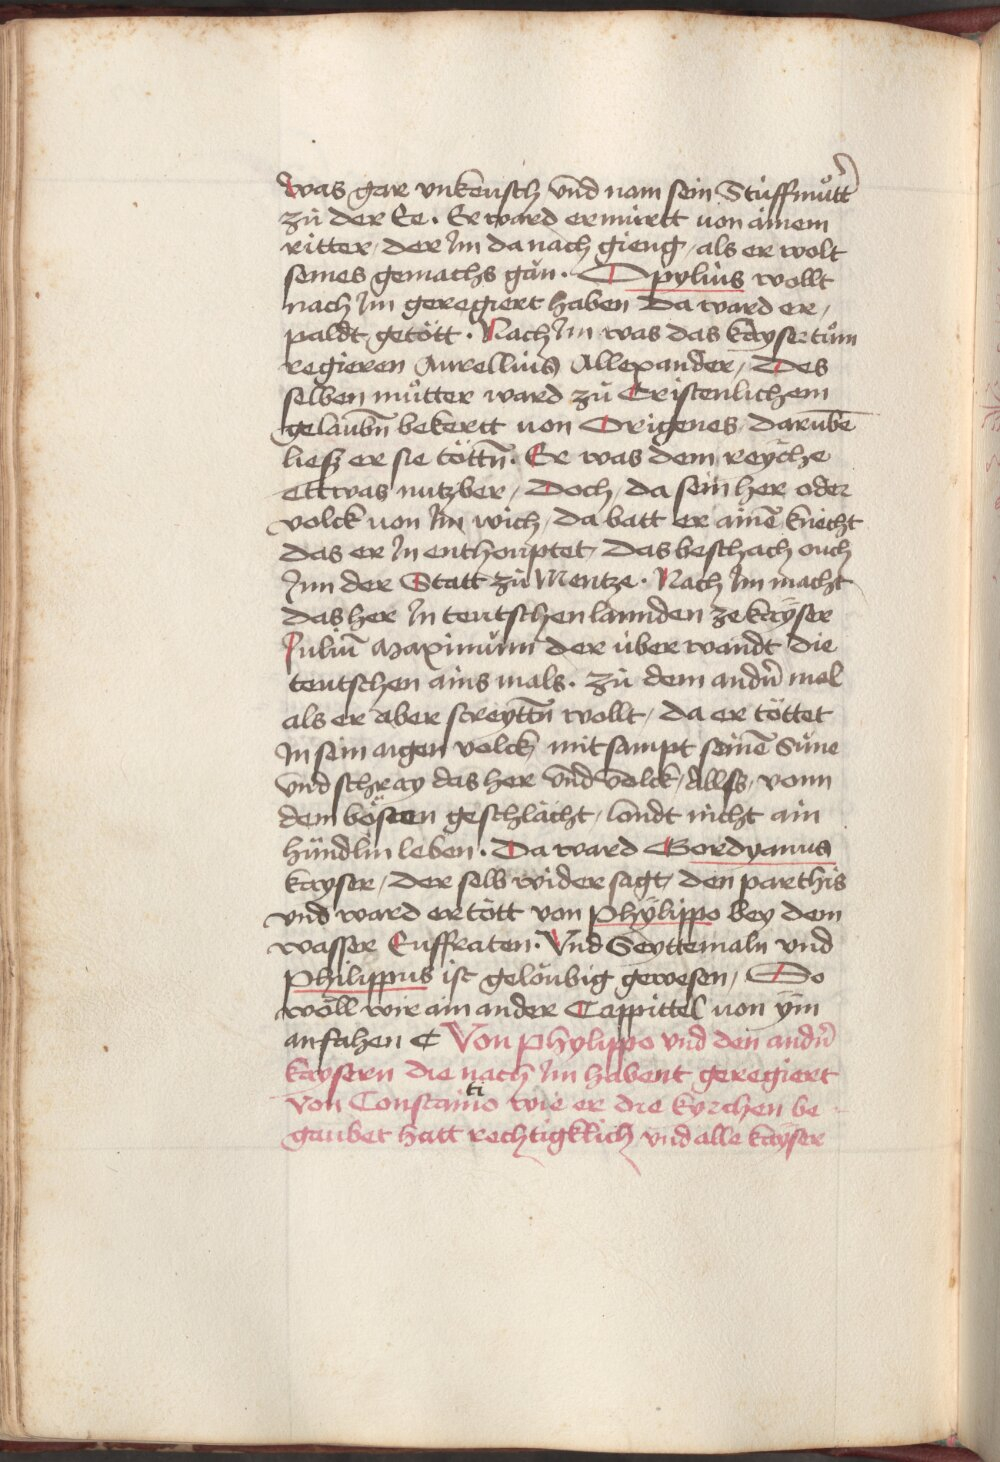 was gar vnkeusch vnd nam sein Stuiffmuͦtt̓
zuͦ der Ee · Er ward ermürtt von ainem
ritter / der Im da nach gieng / als er wolt
seines gemachs gän · Opylius wollt
nach Im geregiert haben Da ward er /
paldt getött · Nach Im was das kayserthuͦm
regieren Aurellius Allexander / Des
selben muͦtter ward zuͦ Cristenlichem
gelaubn̄ bekertt von Origenes / darūbe
liesz er sie töttn̄ · Er was dem reyche
ettwas nutzber / Doch / da sein her oder
volck von Im wich / da batt er ainē knecht
das er In enthouptet / das beschach ouch
Inn der Statt zuͦ Mentze · Nach Im macht
das her In teutschen lannden ze kaÿser
Juliū Maximūm der über wandt die
teutschen ains mals · zuͦ dem andn̄ mal
als er aber streyttn̄ wollt / da er töttet
In sein aigen volck / mit sampt seinē Süne
vnd schray das her vnd volck / Allsz / vonn
dem bösten geschlächt / londt nicht ain
hündlin leben · Da ward Gordyanus
kayser / der selb wider sagt / den parthis
vnd ward er tött von Phÿlippo bey dem
wasser Euffraten · Vnd Seyttemaln vnd
Philippus ist geloubig gewesen / So
wöll wir ain ander Cappittel von ÿm
anfahen C Von Phylippo vnd den andn̄
kaysern die nach Im habent geregiert
Von Constantino wie er die kyrchen be
gaubet hatt rechtigklich vnd alle kaÿser